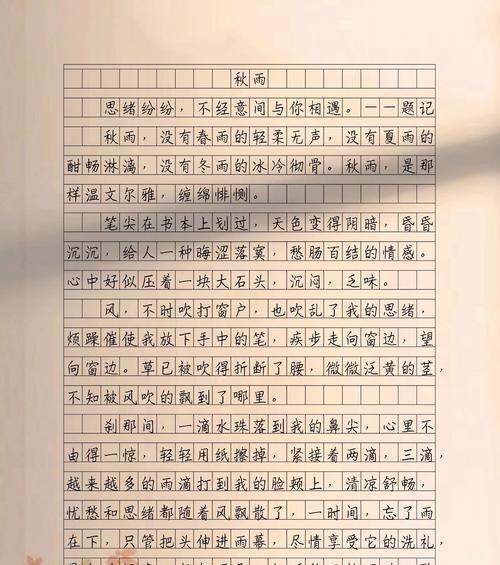 秋雨
思绪纷纷，不经意间与你相遇。——题记
秋雨，没有春雨的轻柔无声，没有夏雨的
酣畅淋漓，没有冬雨的冰冷彻骨。秋雨，是那
样温文尔雅，缠绵悱恻。
笔尖在书本上划过，天色变得阴暗，昏昏
沉沉，给人一种晦涩落寞，愁肠百结的情感。
心中好似压着一块大石头，沉闷，乏味。
风，不时吹打窗户，也吹乱了我的思绪，
烦躁催使我放下手中的笔，疾步走向窗边，望
向窗边。草已被吹得折断了腰，微微泛黄的茎，
不知被风吹的飘到了哪里。
刹那间，一滴水珠落到我的鼻尖，心里不
由得一惊，轻轻用纸擦掉，紧接着两滴，三滴，
越来越多的雨滴打到我的脸颊上，清凉舒畅，
忧愁和思绪都随着风飘散了，一时间，忘了雨
在下，只管把头伸进雨幕，尽情享受它的洗礼，